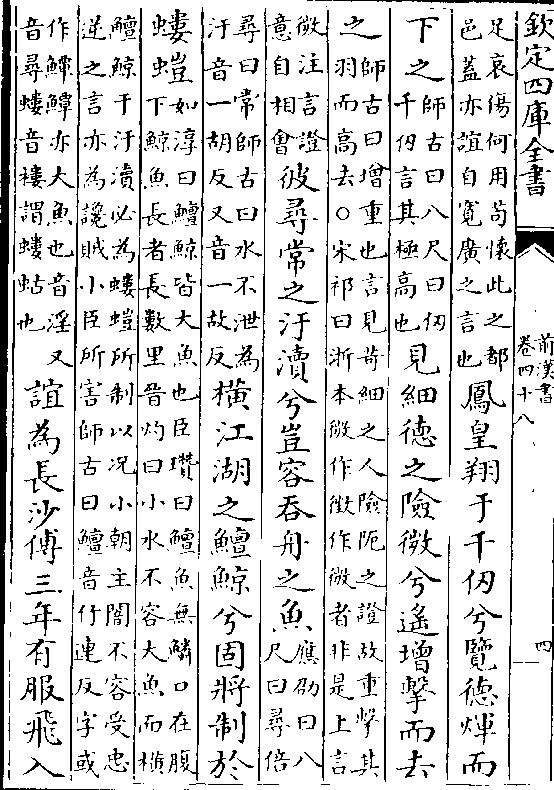 欽定四庫全書
前漢書
卷四十八
四
足哀傷何用苟懷此之都邑蓋亦誼自寬廣之言也鳳皇翔于千仭兮覽德煇而
下之師古曰八尺曰仭千仭言其極高也見細德之險微兮遙增擊而去
之師古曰增重也言見苛細之人險阨之證故重擊其羽而高去○宋祁曰浙本微作徵作微者非是上言
微注言證意自相會彼尋常之汙瀆兮豈容吞舟之魚應劭曰八尺曰尋倍
尋曰常師古曰水不泄為汙音一胡反又音一故反橫江湖之鱣鯨兮固將制於
螻螘如淳曰鱣鯨皆大魚也臣瓚曰鱣魚無鱗口在腹下鯨魚長者長數里晉灼曰小水不容大魚而橫
鱣鯨于汙瀆必為螻螘所制以况小朝主闇不容受忠逆之言亦為讒賊小臣所害師古曰鱣音竹連反字或
作鱏鱏亦大魚也音淫又音尋螻音褸謂螻蛄也誼為長沙傅三年有服飛入